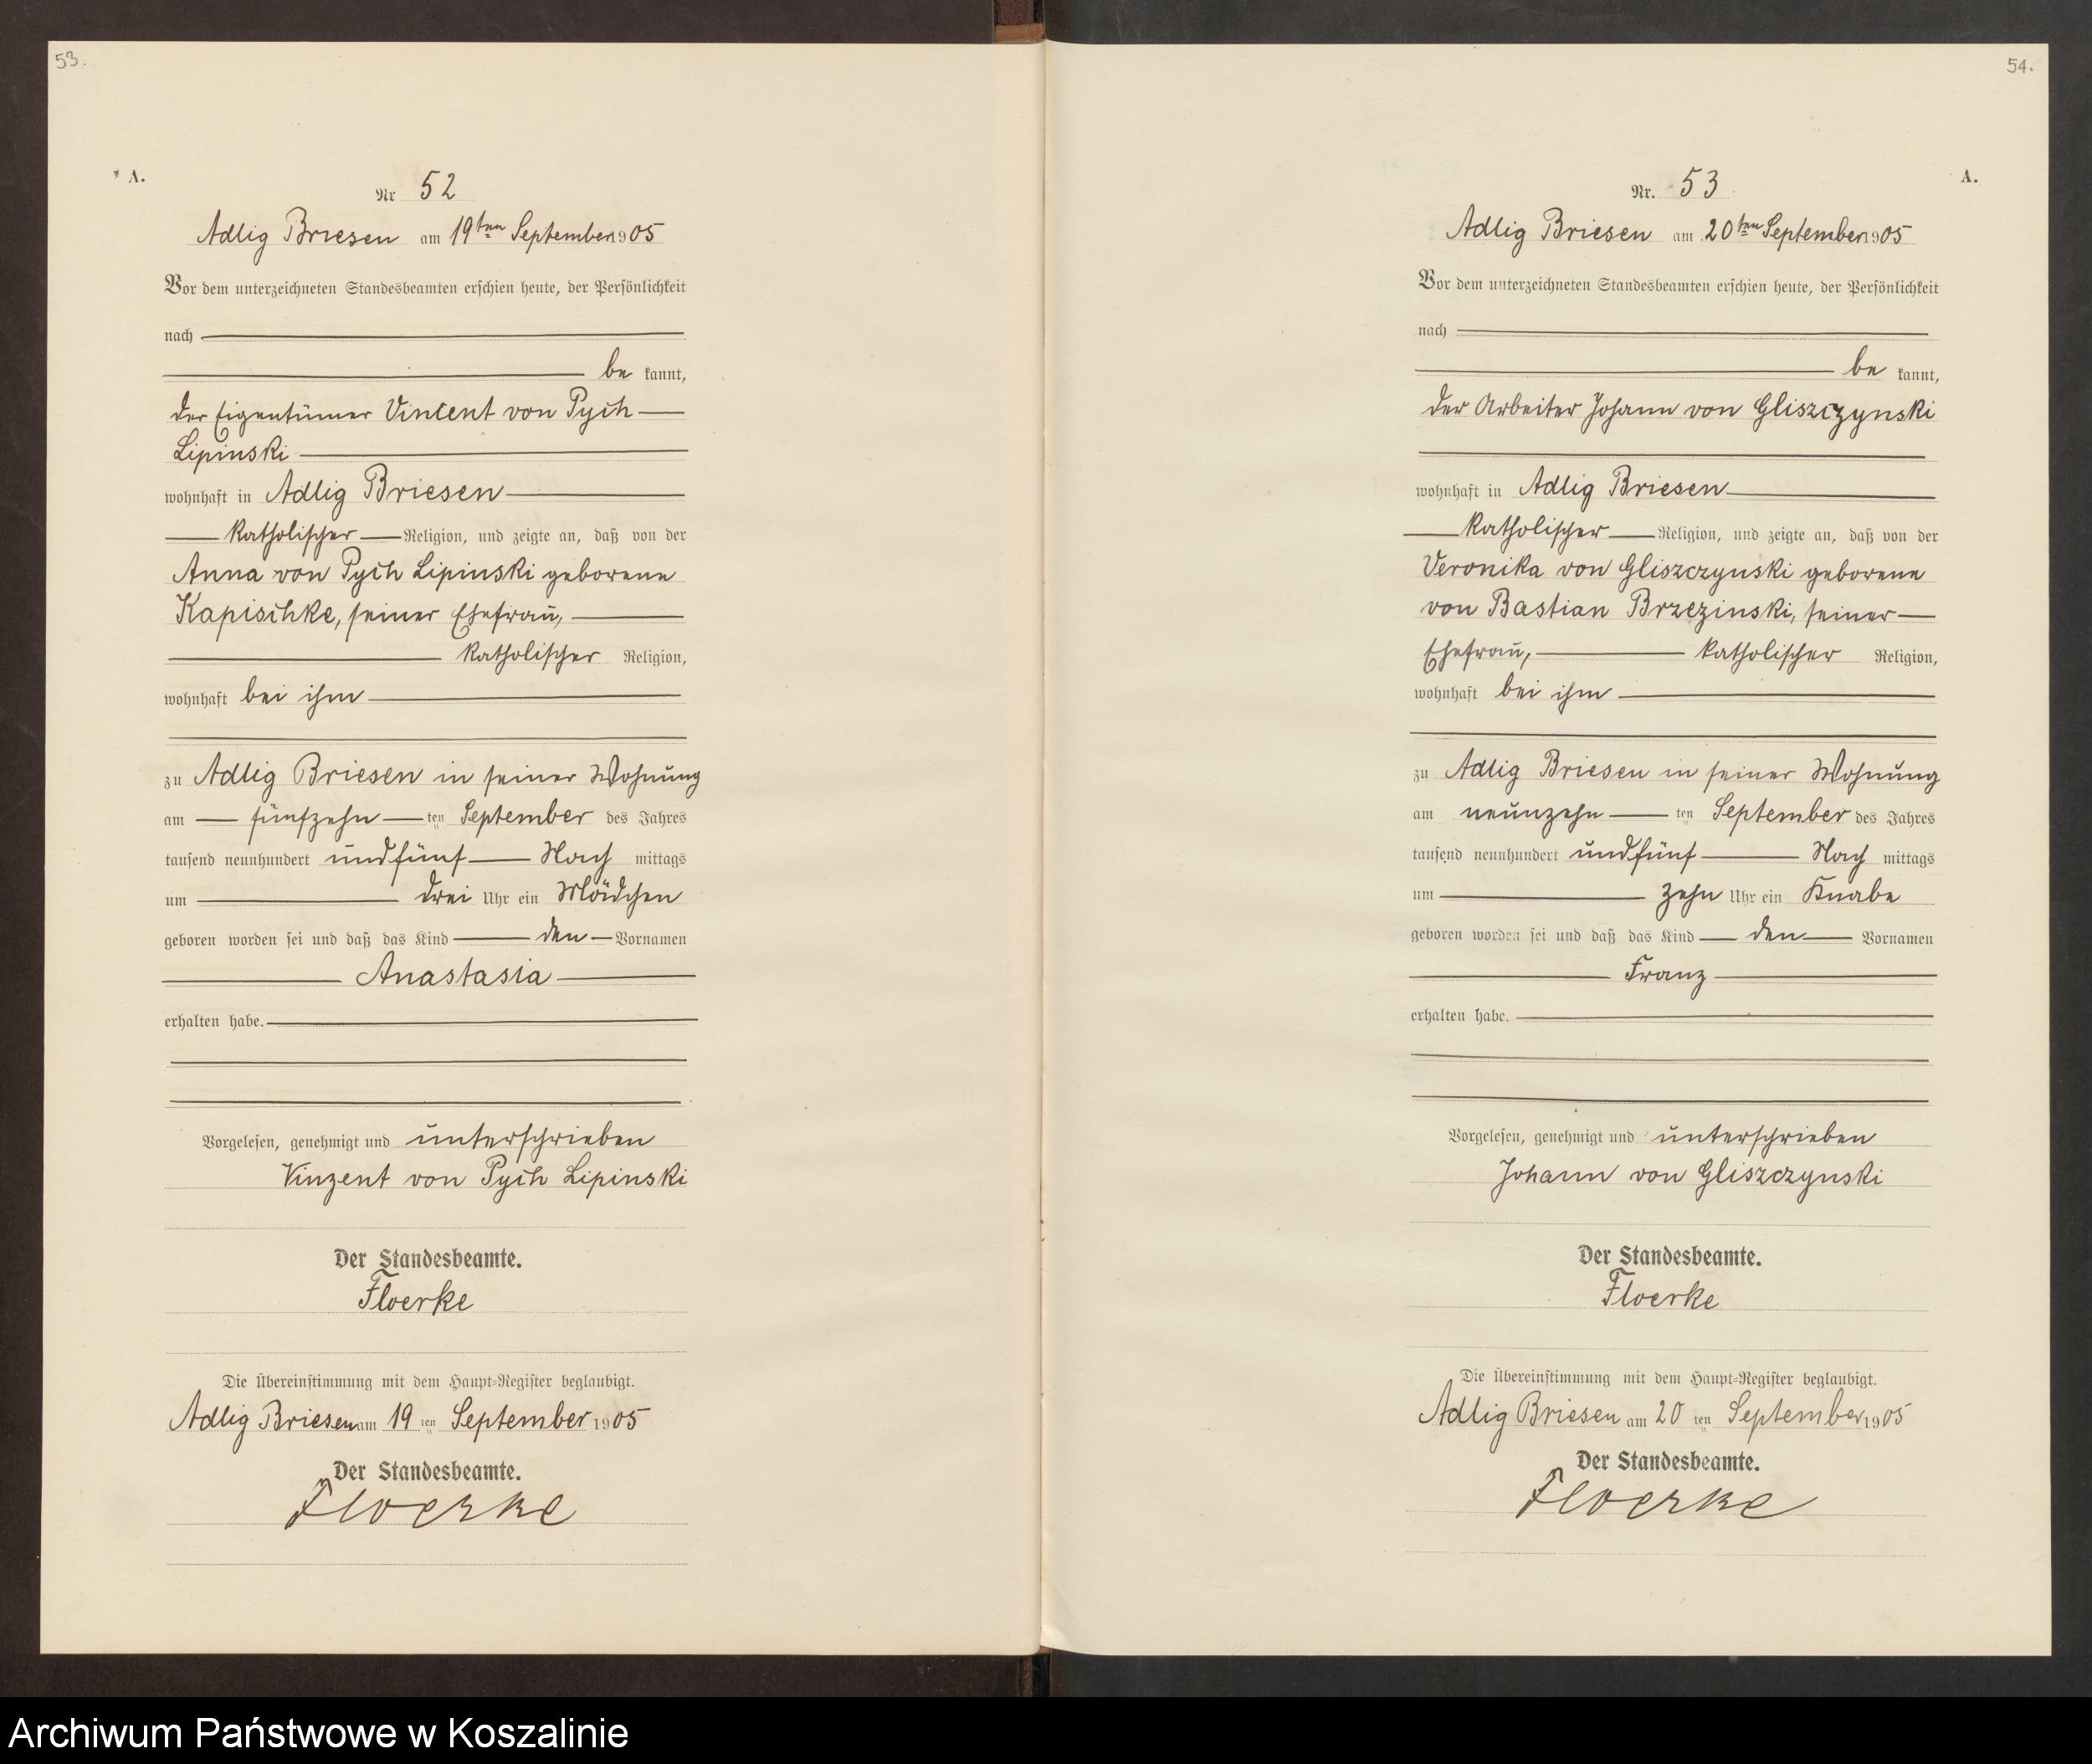 53.
A.
Nr 52
Adlig Briesen am 19ten September 1905
Vor dem unterzeichneten Standesbeamten erschien heute, der Persönlichkeit
nach
be kannt,
der Eigentümer Vincent von Pych
Lipinski
wohnhaft in Adlig Briesen
katholischer Religion, und zeigte an, daß von der
Anna von Pych Lipinski geborene
Kapischke, seiner Ehefrau,
katholischer Religion,
wohnhaft bei ihm
zu Adlig Briesen in seiner Wohnung
am fünfzehn ten September des Jahres
tausend neunhundert undfünf Nach mittags
um drei Uhr ein Mädchen
geboren worden sei und daß das Kind den Vornamen
Anastasia
erhalten habe.
Vorgelesen, genehmigt und unterschrieben
Vinzent von Pych Lipinski
Der Standesbeamte.
Floerke
Die Übereinstimmung mit dem Haupt-Register beglaubigt.
Adlig Briesen am 19 ten September 1905
Der Standesbeamte.
Floerke
54.
A.
Nr. 53
Adlig Briesen am 20ten September 1905
Vor dem unterzeichneten Standesbeamten erschien heute, der Persönlichkeit
nach
be kannt,
der Arbeiter Johann von Gliszczynski
wohnhaft in Adlig Briesen
katholischer Religion, und zeigte an, daß von der
Veronika von Gliszczynski geborene
von Bastian Brzezinski, seiner
Ehefrau, katholischer Religion,
wohnhaft bei ihm
zu Adlig Briesen in seiner Wohnung
am neunzehn ten September des Jahres
tausend neunhundert undfünf Nach mittags
um zehn Uhr ein Knabe
geboren worden sei und daß das Kind den Vornamen
Franz
erhalten habe.
Vorgelesen, genehmigt und unterschrieben
Johann von Gliszczynski
Der Standesbeamte.
Floerke
Die Übereinstimmung mit dem Haupt-Register beglaubigt.
Adlig Briesen am 20 ten September 1905
Der Standesbeamte.
Floerke
Archiwum Państwowe w Koszalinie